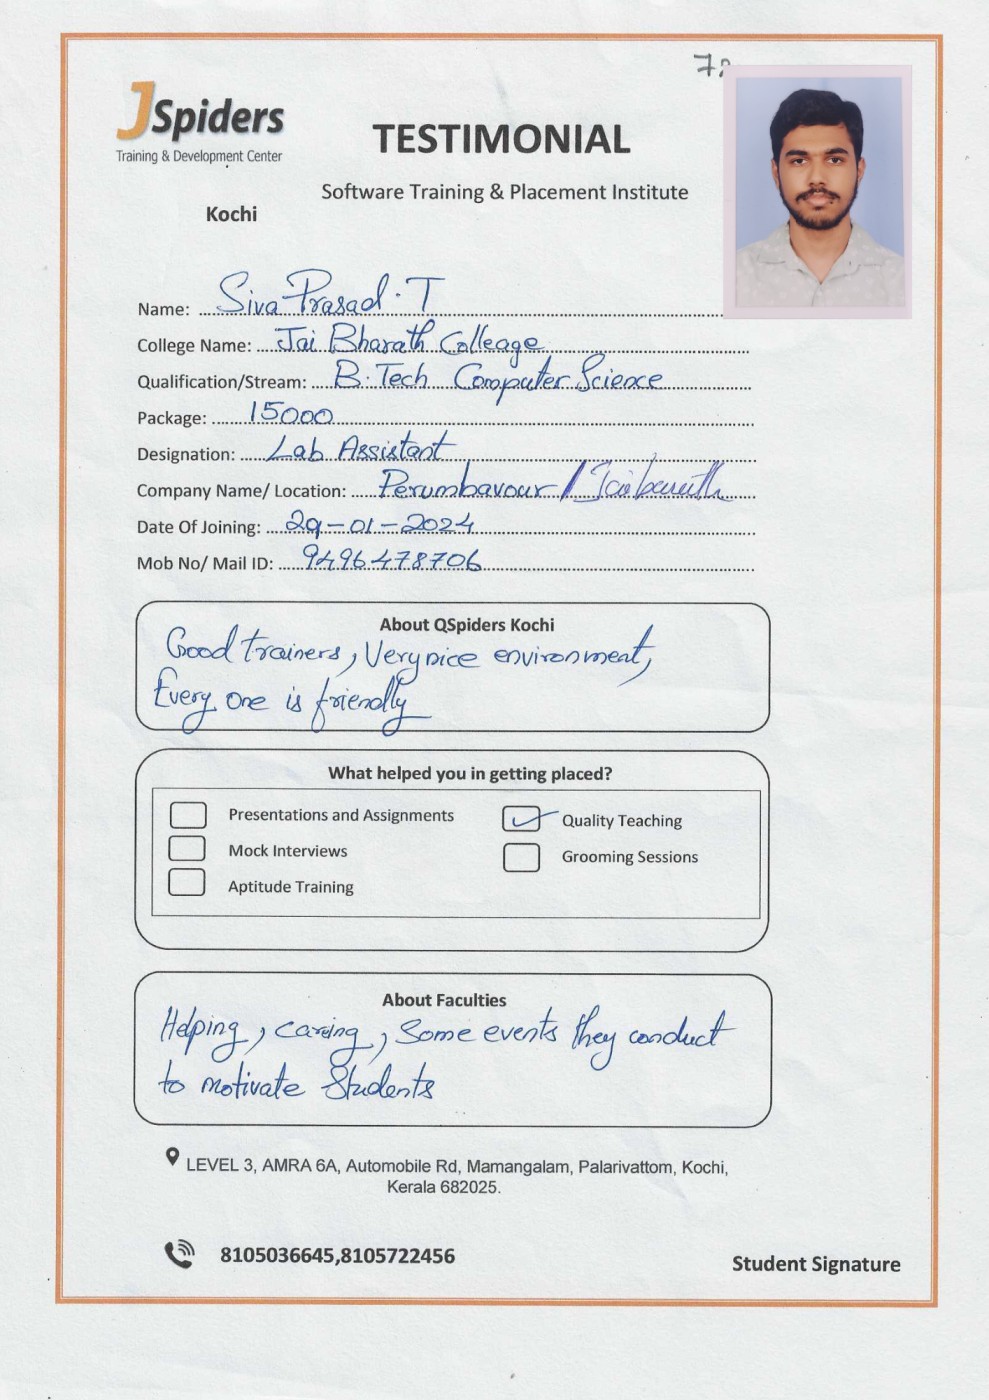 JSpiders
Training & Development Center
Kochi
TESTIMONIAL
Software Training & Placement Institute
Name: Siva Prasad. T
College Name: Jai Bharath Colleage
Qualification/Stream: B.Tech Computer Science
Package: 15000
Designation: Lab Assistant
Company Name/ Location: Perumbavour /
Date Of Joining: 29-01-2024
Mob No/ Mail ID: 9496478706
About QSpiders Kochi
Good trainers, Very nice environment,
Every one is friendly
What helped you in getting placed?
Presentations and Assignments
Quality Teaching
Mock Interviews
Grooming Sessions
Aptitude Training
About Faculties
Helping, caring, Some events they conduct
to motivate Students
LEVEL 3, AMRA 6A, Automobile Rd, Mamangalam, Palarivattom, Kochi,
Kerala 682025.
8105036645,8105722456
Student Signature